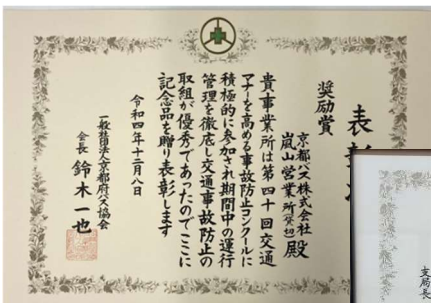 表彰状
奨励賞
京都バス株式会社
嵐山営業所(貸切)殿
貴事業所は第四十回交通
マナーを高める事故防止コンクールに
積極的に参加され期間中の運行
管理を徹底し交通事故防止の
取組が優秀であったのでここに
記念品を贈り表彰します
令和四年十二月八日
一般社団法人京都府バス協会
会長 鈴木一也
支局長